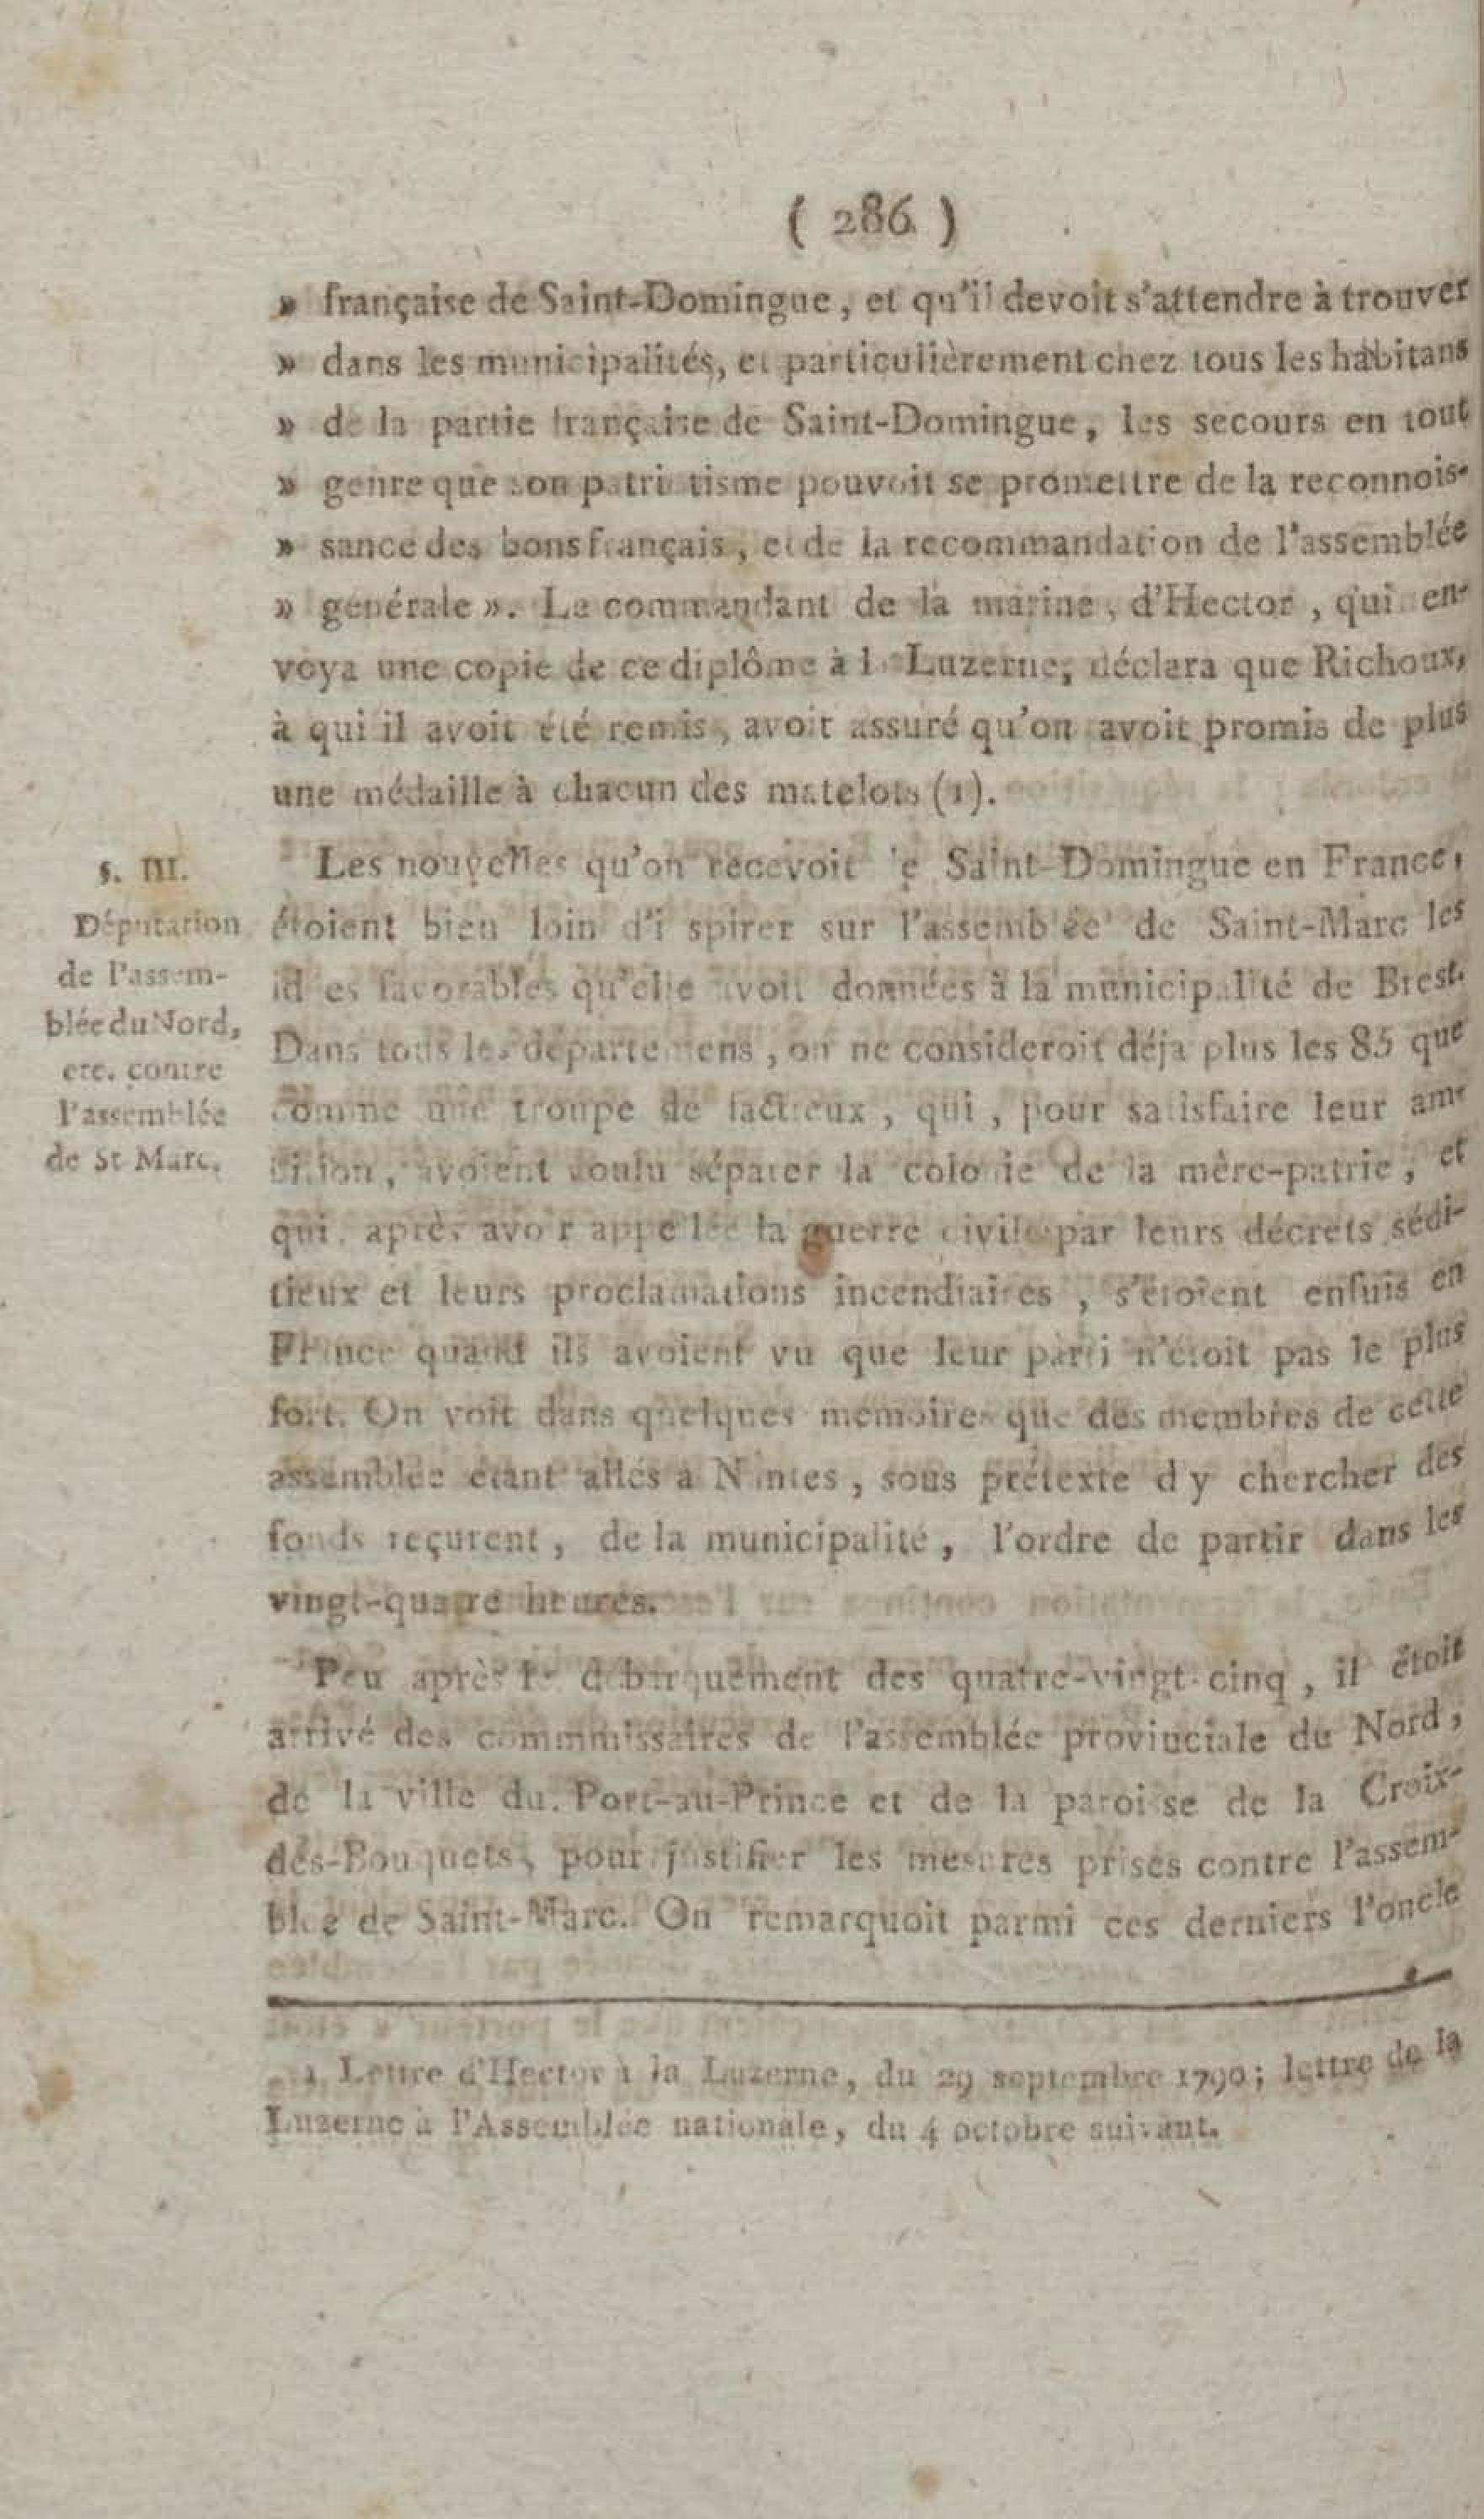 ( 286 )
» française de Saint-Domingue, et qu'il devoit s'attendre à trouver
» dans les municipalités, et particulièrement chez tous les habitans
» de la partie française de Saint-Domingue, les secours en tout
» genre que son patriotisme pouvoit se promettre de la reconnois-
» sance des bons français, et de la recommandation de l'assemblée
» générale ». Le commandant de la marine, d'Hector, qui en-
voya une copie de ce diplôme à la Luzerne, déclara que Richoux,
à qui il avoit été remis, avoit assuré qu'on avoit promis de plus
une médaille à chacun des matelots (1).
§. III.
Députation
de l'assem-
blée du Nord,
etc. contre
l'assemblée
de St Marc.
Les nouvelles qu'on recevoit de Saint-Domingue en France,
étoient bien loin d'inspirer sur l'assemblée de Saint-Marc les
idées favorables qu'elle avoit données à la municipalité de Brest.
Dans tous les départemens, on ne consideroit déja plus les 85 que
comme une troupe de factieux, qui, pour satisfaire leur am-
bition, avoient voulu séparer la colonie de la mère-patrie, et
qui, après avoir appelée la guerre civile par leurs décrets sédi-
tieux et leurs proclamations incendiaires, s'étoient enfuis en
France quand ils avoient vu que leur parti n'étoit pas le plus
fort. On voit dans quelques mémoires que des membres de cette
assemblée étant allés à Nantes, sous prétexte d'y chercher des
fonds reçurent, de la municipalité, l'ordre de partir dans les
vingt-quatre heures.
Peu après le débarquement des quatre-vingt-cinq, il étoit
arrivé des commmissaires de l'assemblée provinciale du Nord,
de la ville du Port-au-Prince et de la paroisse de la Croix-
des-Bouquets, pour justifier les mesures prises contre l'assem-
blée de Saint-Marc. On remarquoit parmi ces derniers l'oncle
1 Lettre d'Hector à la Luzerne, du 29 septembre 1790; lettre de la
Luzerne à l'Assemblée nationale, du 4 octobre suivant.